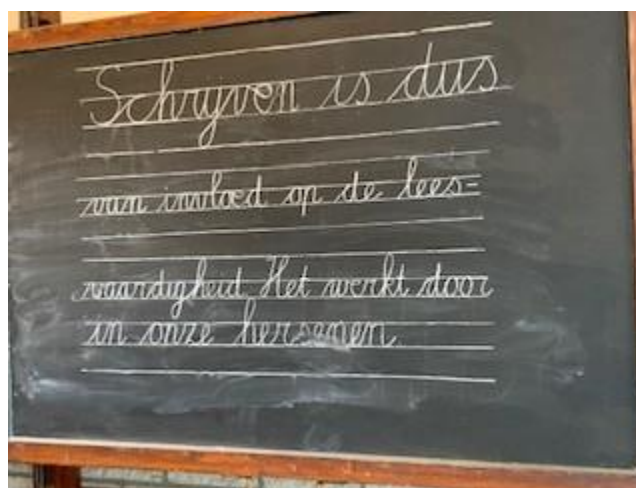 Schrijven is dus
van invloed op de lees-
vaardigheid Het werkt door
in onze hersenen